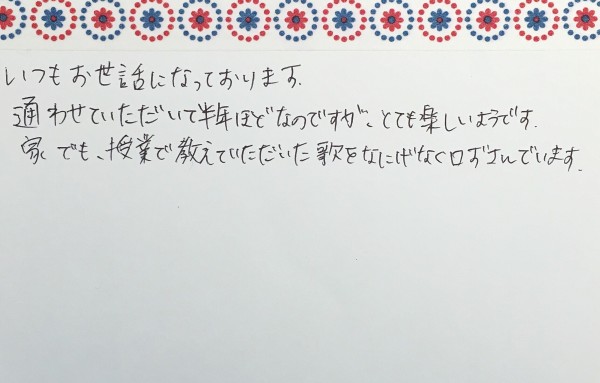 いつもお世話になっております.
通わせていただいて半年ほどなのですが、とても楽しいようです.
家でも、授業で教えていただいた歌をなにげなく口ずさんでいます.